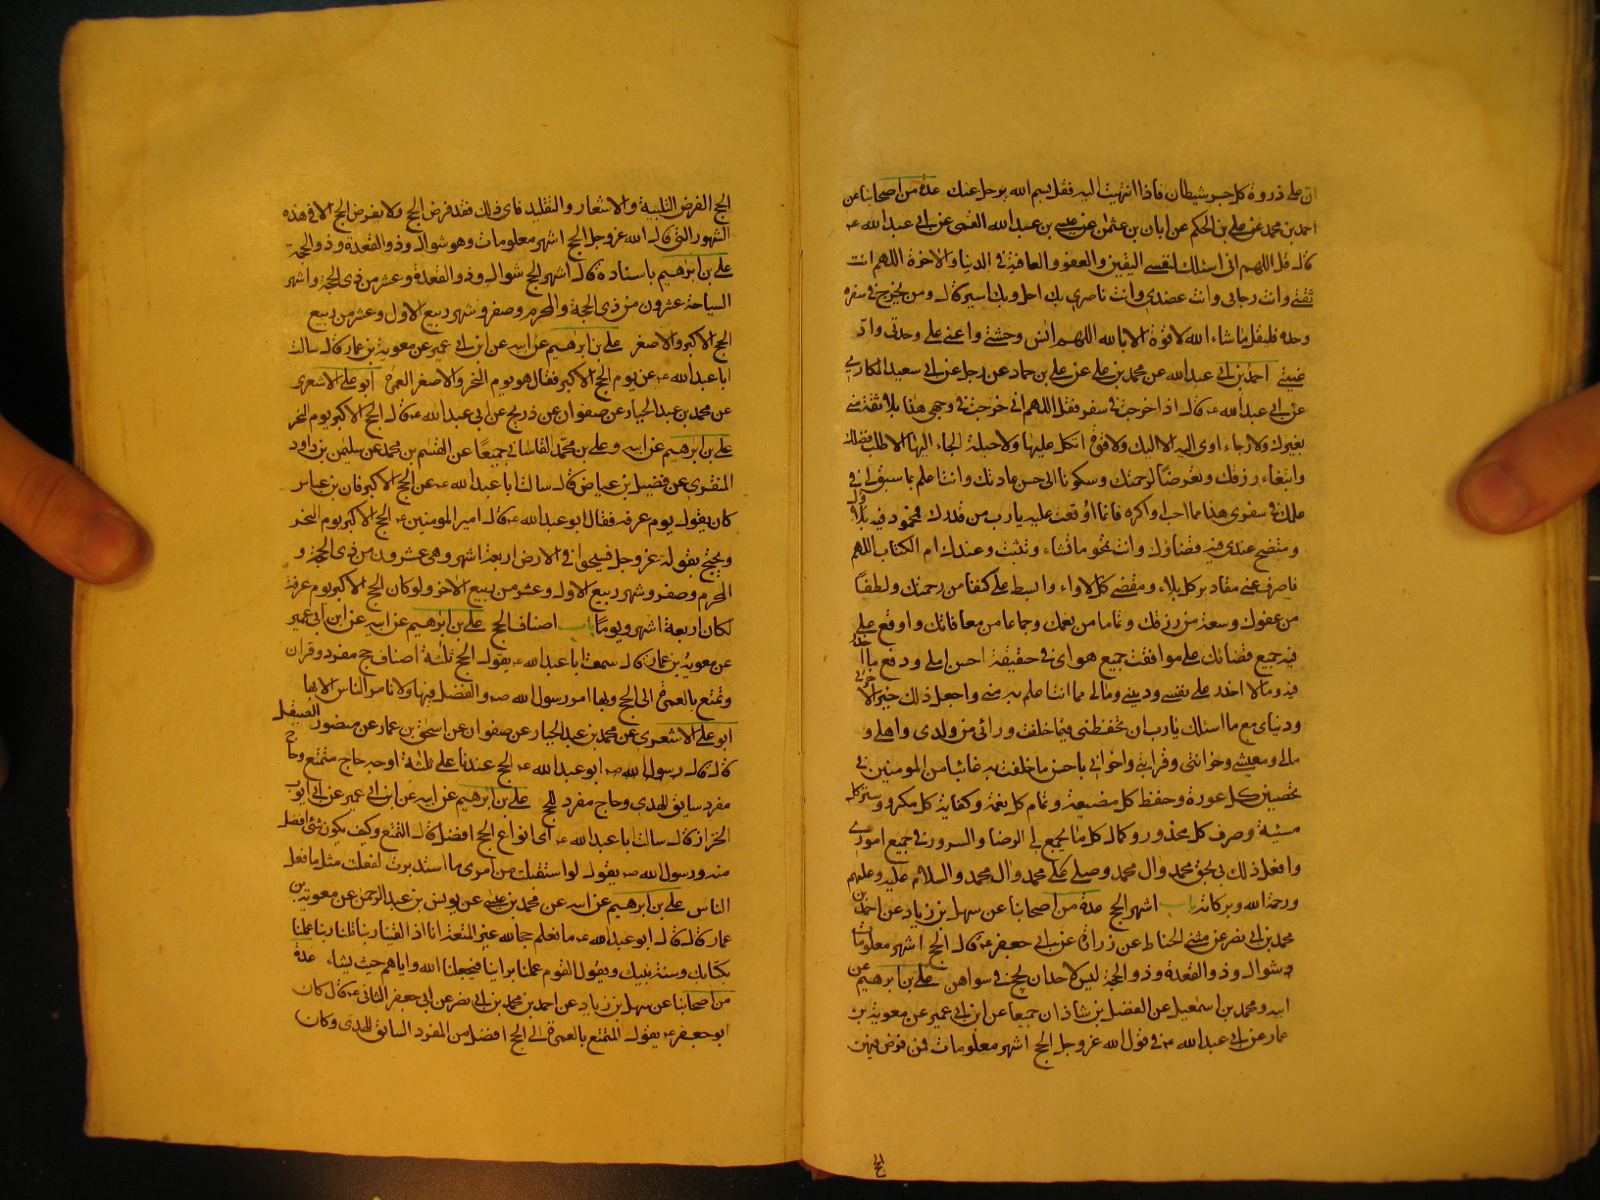 ان على ذروة كل جسر شيطان فاذا انتهيت اليه فقل بسم الله يرحل عنك عدة من اصحابنا عن
احمد بن محمد عن علي بن الحكم عن ابان بن عثمن عن عيسى بن عبد الله القمي عن ابي عبد الله ع
قال قل اللهم اني اسئلك لنفسي اليقين والعفو والعافية في الدنيا والاخرة اللهم انت
ثقتي وانت رجائي وانت عضدي وانت ناصري بك احل وبك اسير قال ومن يخرج في سفره
وحده فليقل ما شاء الله لا قوة الا بالله اللهم انس وحشتي واعني على وحدتي واد
غيبتي احمد بن ابي عبد الله عن محمد بن علي عن علي بن حماد عن رجل عن ابي سعيد المكاري
عن ابي عبد الله ع قال اذا خرجت في سفر فقل اللهم اني خرجت في وجهي هذا بلا ثقة مني
بغيرك ولا رجاء اوي اليه الا اليك ولا قوة اتكل عليها ولا حيلة الجاء اليها الا طلب فضلك
وابتغاء رزقك وتعرضا لرحمتك وسكونا الى حسن عادتك وانت اعلم بما سبق لي في
علمك في سفري هذا مما احب او اكره فانما اوقعت عليه يارب من قدرك فمحمود فيه بلاؤك
ومتضح عندي فيه قضاؤك وانت تمحو ما تشاء وتثبت وعندك ام الكتاب اللهم
فاصرف عني مقادير كل بلاء ومقضي كل لاواء وابسط علي كنفا من رحمتك ولطفا
من عفوك وسعة من رزقك وتماما من نعمك وجماعا من معافاتك واوقع علي
فيه جميع قضائك على موافقت جميع هواي في حقيقة احسن املي ودفع ما احذر
فيه وما لا احذر على نفسي وديني ومالي مما انت اعلم به مني واجعل ذلك خيرا لاخرتي
ودنياي مع ما اسئلك يارب ان تحفظني فيما خلفت ورائي من ولدي واهلي و
مالي ومعيشتي وحزانتي وقرابتي واخواني باحسن ما خلفت به غائبا من المومنين في
تحصين كل عورة وحفظ كل مضيعة وتمام كل نعمة وكفاية كل مكروه وستر كل
سيئة وصرف كل محذور وكمال كل ما يجمع لي الرضا والسرور في جميع اموري
وافعل ذلك بي بحق محمد وال محمد وصلى على محمد وال محمد والسلام عليه وعليهم
ورحمة الله وبركاته باب اشهر الحج عدة من اصحابنا عن سهل بن زياد عن احمد بن
محمد بن ابي نصر عن مثنى الحناط عن زرارة عن ابي جعفر ع قال الحج اشهر معلومات
شوال وذو القعدة وذو الحجة ليس لاحد ان يحج في سواهن علي بن ابرهيم عن
ابيه ومحمد بن اسمعيل عن الفضل بن شاذان جميعا عن ابن ابي عمير عن معوية بن
عمار عن ابي عبد الله ع في قول الله عز وجل الحج اشهر معلومات فمن فرض فيهن
الحج
الحج الفرض التلبية والاشعار والتقليد فاي ذلك فقد فرض الحج ولا يفرض الحج الا في هذه
الشهور التي قال الله عز وجل الحج اشهر معلومات وهو شوال وذو القعدة وذو الحجة
علي بن ابرهيم باسناده قال اشهر الحج شوال وذو القعدة وعشر من ذي الحجة واشهر
السياحة عشرون من ذي الحجة والمحرم وصفر وشهر ربيع الاول وعشر من ربيع
الحج الاكبر والاصغر علي بن ابرهيم عن ابيه عن ابن ابي عمير عن معوية بن عمار قال سالت
ابا عبد الله ع عن يوم الحج الاكبر فقال هو يوم النحر والاصغر العمرة ابو علي الاشعري
عن محمد بن عبد الجبار عن صفوان عن ذريح عن ابي عبد الله ع قال الحج الاكبر يوم النحر
علي بن ابرهيم عن ابيه وعلي بن محمد القاساني جميعا عن القسم بن محمد عن سليمن بن داود
المنقري عن فضيل بن عياض قال سالت ابا عبد الله ع عن الحج الاكبر فان بن عباس
كان يقول يوم عرفه فقال ابو عبد الله ع قال امير المومنين ع الحج الاكبر يوم النحر
ويحتج بقوله عز وجل فسيحوا في الارض اربعة اشهر وهي عشرون من ذي الحجة و
المحرم وصفر وشهر ربيع الاول وعشر من ربيع الاخر ولو كان الحج الاكبر يوم عرفة
لكان اربعة اشهر ويوما باب اصناف الحج علي بن ابرهيم عن ابيه عن ابن ابي عمير
عن معوية بن عمار قال سمعت ابا عبد الله ع يقول الحج ثلثة اصناف حج مفرد وقران
وتمتع بالعمرة الى الحج وبها امر رسول الله ص والفضل فيها ولا نامر الناس الا بها
ابو علي الاشعري عن محمد بن عبد الجبار عن صفوان عن اسحق بن عمار عن منصور الصيقل
قال قال ابو عبد الله ع الحج عندنا على ثلثة اوجه حاج متمتع وحاج
مفرد سايق للهدي وحاج مفرد للحج علي بن ابرهيم عن ابيه عن ابن ابي عمير عن ابي ايوب
الخزاز قال سالت ابا عبد الله ع اي انواع الحج افضل قال التمتع وكيف يكون شئ افضل
منه ورسول الله ص يقول لو استقبلت من امري ما استدبرت لفعلت مثل ما فعل
الناس علي بن ابرهيم عن ابيه عن محمد بن عيسى عن يونس بن عبد الرحمن عن معوية بن
عمار قال قال ابو عبد الله ع ما نعلم حجا لله غير المتعة انا اذا لقينا ربنا قلنا ربنا عملنا
بكتابك وسنة نبيك ويقول القوم عملنا براينا فيجعلنا الله واياهم حيث يشاء عدة
من اصحابنا عن سهل بن زياد عن احمد بن محمد بن ابي نصر عن ابي جعفر الثاني ع قال كان
ابو جعفر ع يقول المتمتع بالعمرة الى الحج افضل من المفرد السايق للهدي وكان